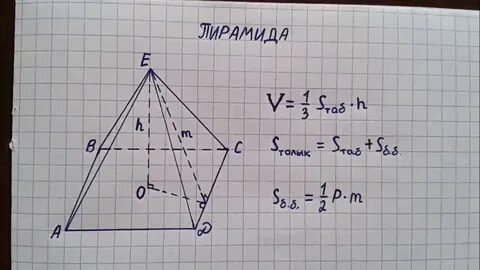 ПИРАМИДА
E
h
m
B
C
O
A
D
V = 1/3 Sтаб · h
Sтолық = Sтаб + Sб.б.
Sб.б. = 1/2 P · m